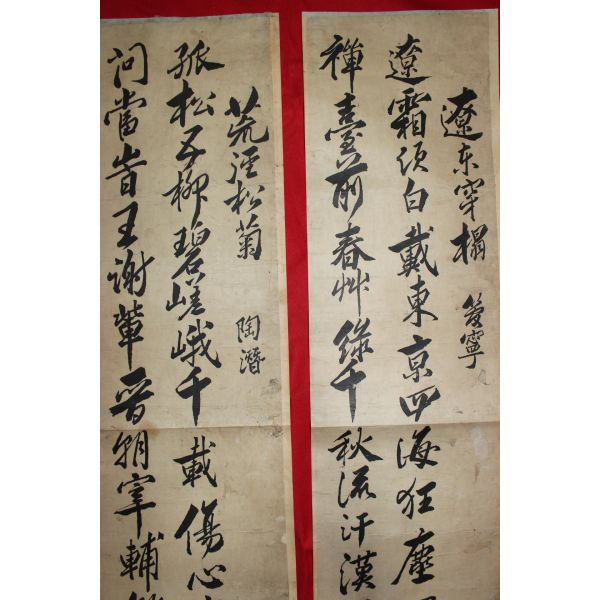 遼東穿榻
管寧
遼霜須白戴東京四海狂塵
禪臺前春艸綠千秋流汗漢
荒涇松菊
陶潛
孤松五柳碧嵯峨千載傷心
問當時王謝輩晉朝宰輔